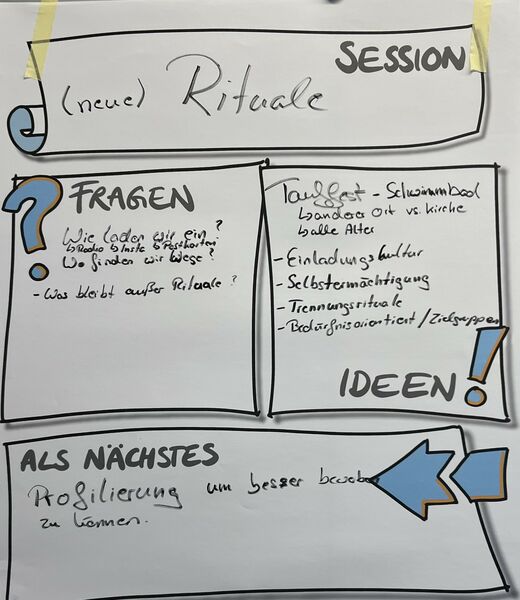 SESSION
(neue) Rituale
FRAGEN
Wie laden wir ein?
↳Radio ↳Insta ↳Postkarten
Wo finden wir Wege?
- Was bleibt außer Rituale?
Tauffest - Schwimmbad
↳anderer Ort vs. Kirche
↳alle Alter
- Einladungskultur
- Selbstermächtigung
- Trennungsrituale
- Bedürfnisorientiert / Zielgruppen
IDEEN!
ALS NÄCHSTES
Profilierung um besser
zu können.